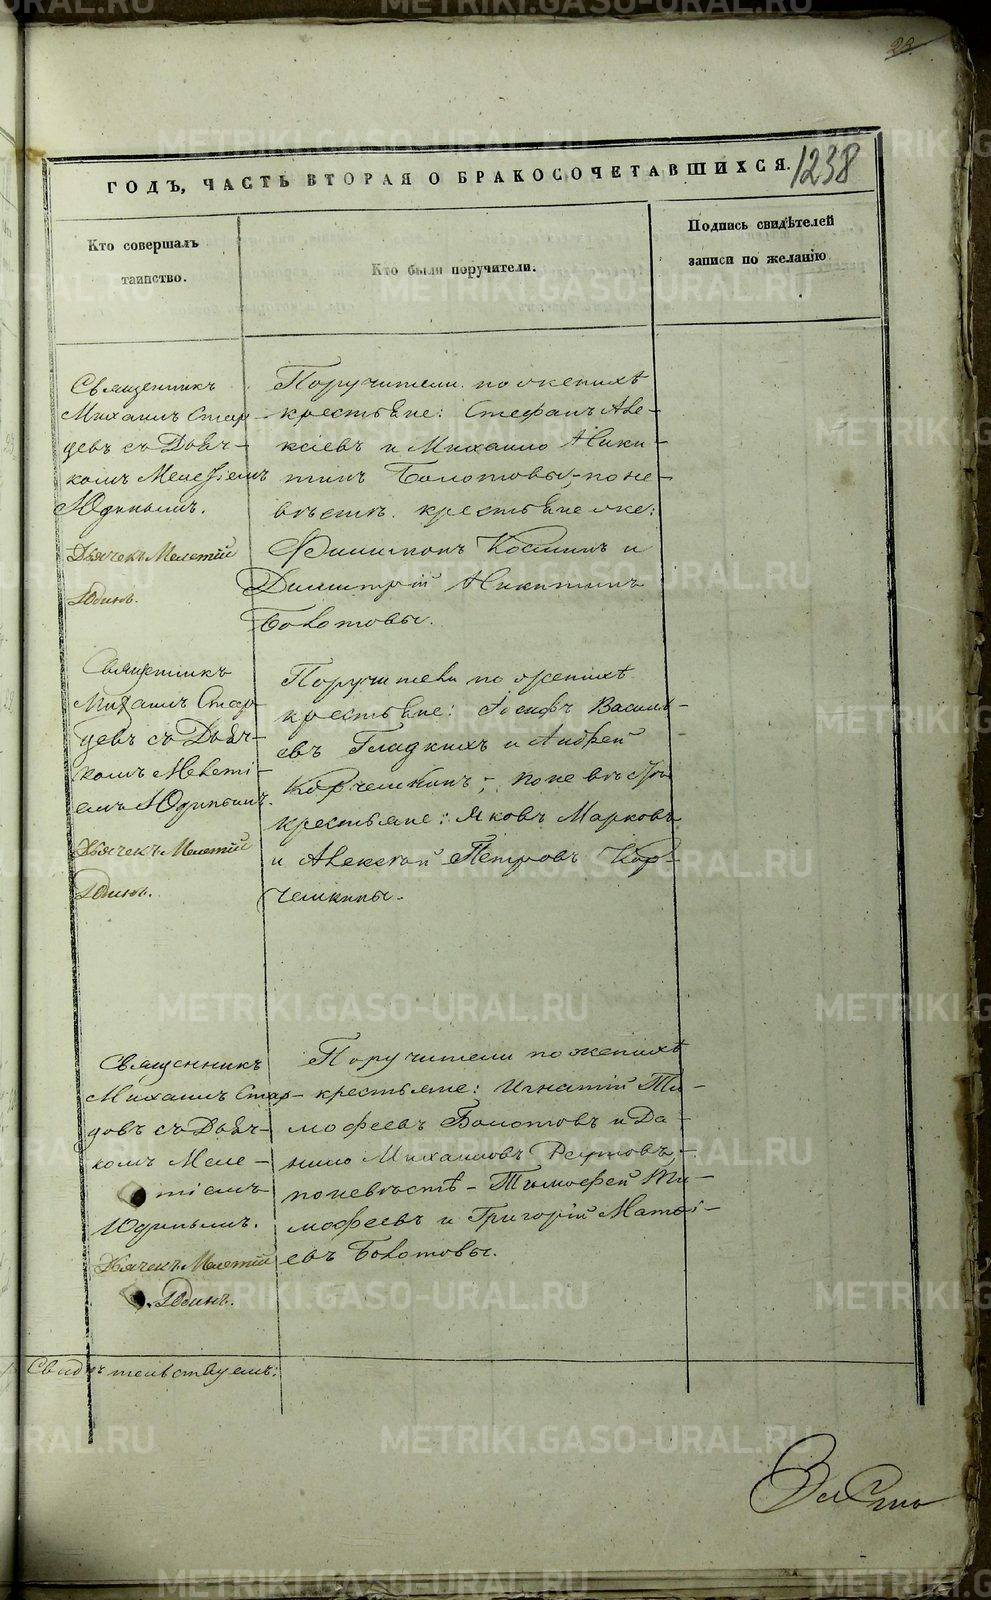 23.
1238
ГОДЪ, ЧАСТЬ ВТОРАЯ О БРАКОСОЧЕТАВШИХСЯ.
Кто совершалъ
таинство.
Кто были поручители.
Подпись свидѣтелей
записи по желанію
Священникъ
Михаилъ Стар-
цевъ съ Дьяч-
комъ Мелетіемъ
Юдинымъ.
Дьячекъ Мелетій
Юдинъ.
Поручители по женихѣ
крестьяне: Стефанъ Але-
ксѣевъ и Михаило Ники-
тинъ Болотовы; по не-
вѣстѣ крестьяне же:
Филимонъ Косминъ и
Димитрій Никитинъ
Болотовы.
Священникъ
Михаилъ Стар-
цевъ съ Дьяч-
комъ Мелеті-
емъ Юдинымъ.
Дьячекъ Мелетій
Юдинъ.
Поручители по женихѣ
крестьяне: Іосифъ Василь-
евъ Гладкихъ и Андрей
Корчемкинъ; по невѣстѣ
крестьяне: Яковъ Марковъ
и Алексѣй Петровъ Кор-
чемкины.
Священникъ
Михаилъ Стар-
цовъ съ Дьяч-
комъ Меле-
тіемъ
Юдинымъ.
Дьячекъ Мелетій
Юдинъ.
Поручители по женихѣ
крестьяне: Игнатій Ти-
мофеевъ Болотовъ и Да-
нило Михаиловъ
по невѣстѣ - Тимофей Ти-
мофеевъ и Григорій Матві-
евъ Болотовы.
Свидѣтельствуемъ:
METRIKI.GASO-URAL.RU